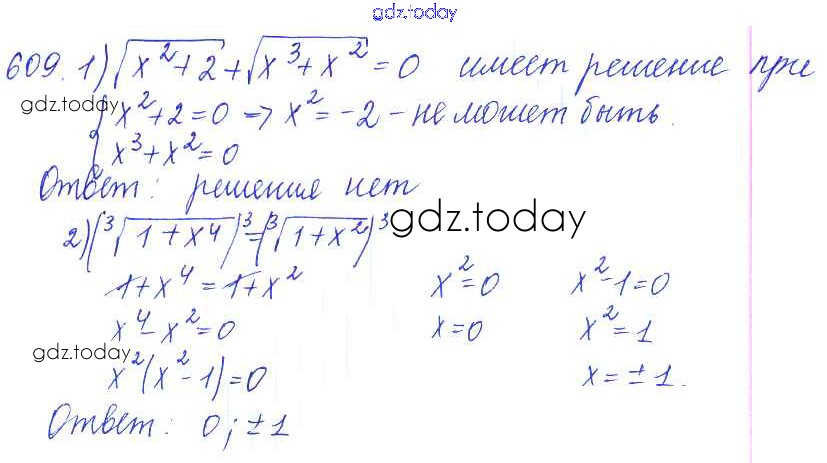 gdz.today
609. 1) √(x²+2) + √(x³+x²) = 0 имеет решение при
gdz.today
{ x²+2=0 => x²=-2 - не может быть.
x³+x²=0
Ответ: решения нет
2) (³√(1+x⁴))³ = (³√(1+x²))³
gdz.today
1+x⁴=1+x² x²=0 x²-1=0
x⁴-x²=0 x=0 x²=1
gdz.today
x²(x²-1)=0 x=±1.
Ответ: 0; ±1